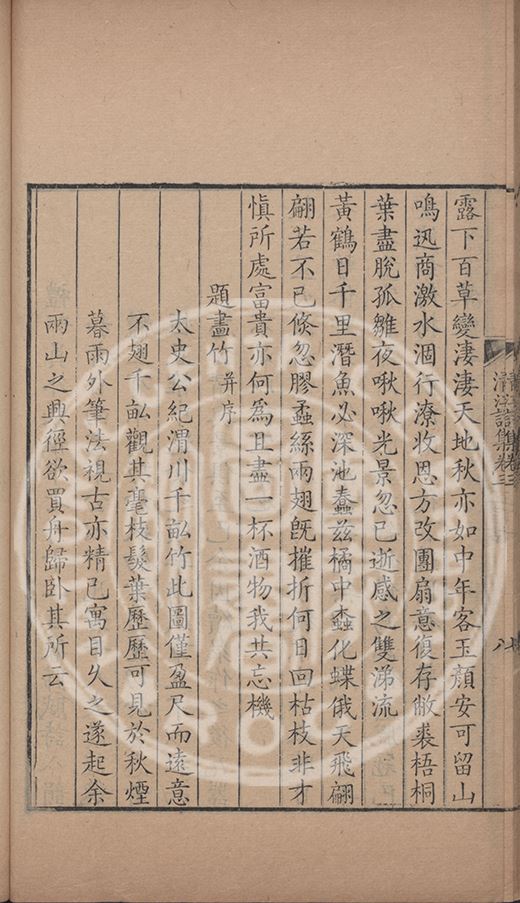 露下百草變淒淒天地秋亦如中年客玉顏安可留山
鳴迅商激水涸行潦收恩方改團扇意復存敝裘梧桐
葉盡脫孤雛夜啾啾光景忽已逝感之雙涕流
黃鶴日千里潛魚必深池蠢茲橘中蟲化蝶俄天飛翩
翩若不已倐忽膠蟊絲兩翅旣摧折何日回枯枝非才
愼所處富貴亦何爲且盡一杯酒物我共忘機
題畫竹 并序
太史公紀渭川千畝竹此圖僅盈尺而遠意
不翅千畝觀其毫枝髮葉歷歷可見於秋煙
暮雨外筆法視古亦精已寓目久之遂起余
兩山之興徑欲買舟歸卧其所云
集卷三
八